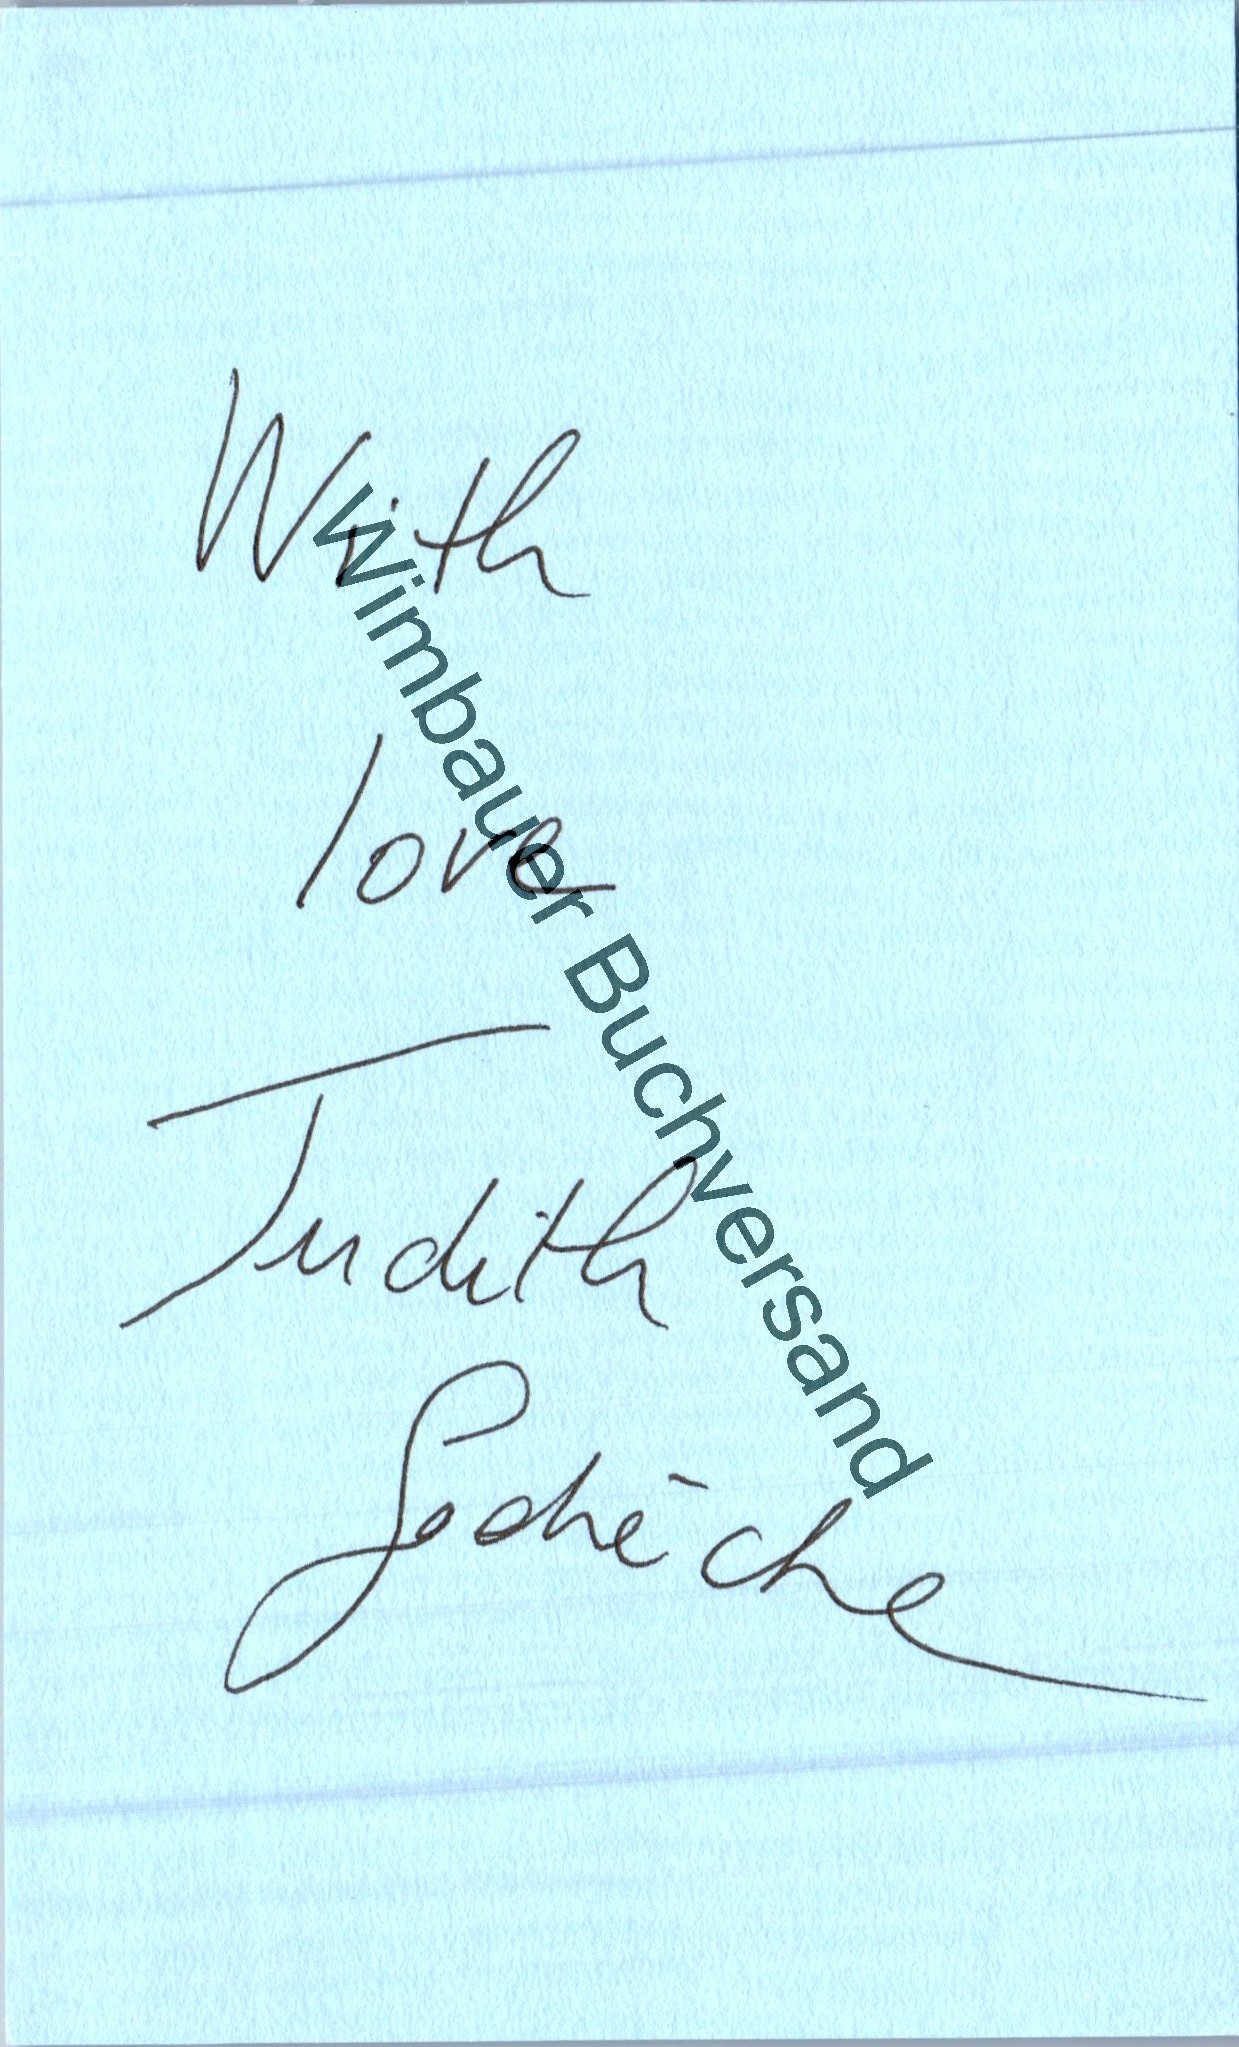 With
love
Judith
Godrèche
Wimbauer Buchversand